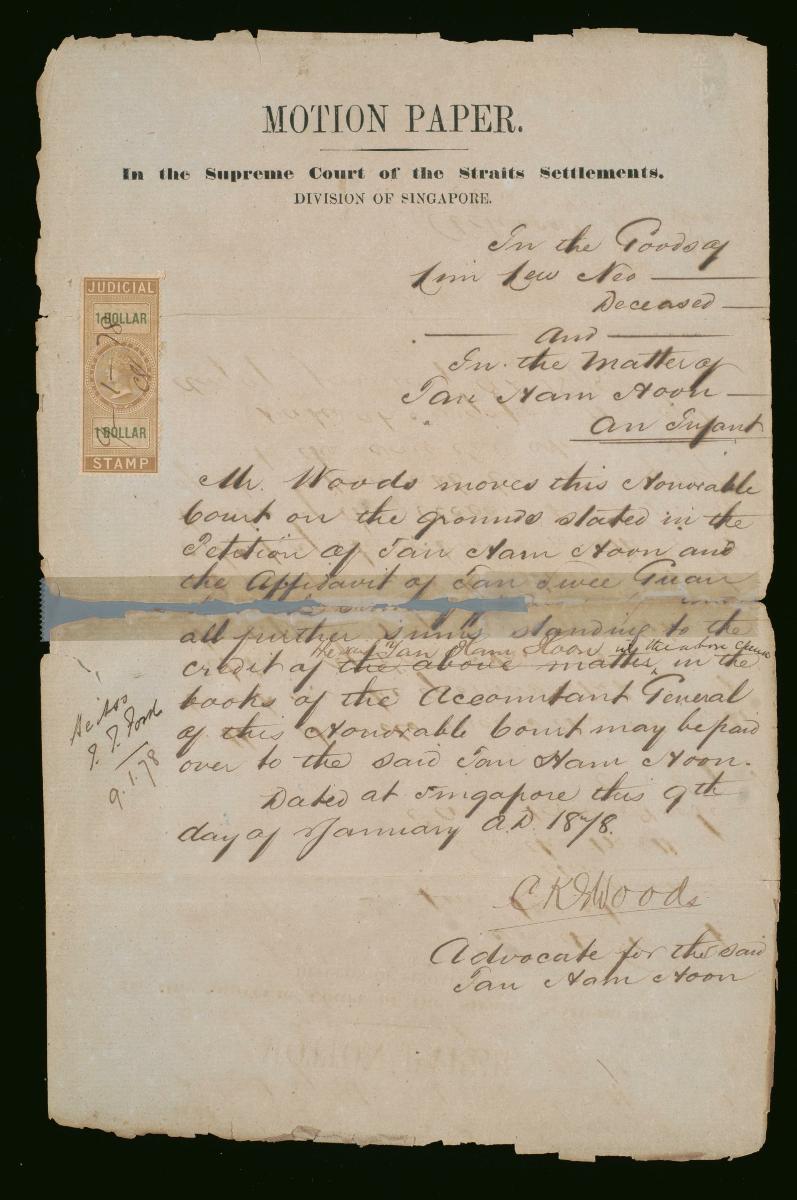 MOTION PAPER.
In the Supreme Court of the Straits Settlements.
DIVISION OF SINGAPORE.
In the Goods of
Lim Lew Neo
Deceased
And
In the Matter of
Tan Ham Hoon
An Infant
JUDICIAL
1 DOLLAR
1 DOLLAR
STAMP
Mr. Woods moves this Honorable
Court on the grounds stated in the
Petition of Tan Ham Hoon and
the Affidavit of Tan Swee Guan
all further sums standing to the
the said Tan Ham Hoon in the above
credit of the above matter in the
books of the Accountant General
of this Honorable Court may be paid
over to the said Tan Ham Hoon.
Dated at Singapore this 9th
day of January A.D. 1878.
9.1.78
C K S Woods
Advocate for the said
Tan Ham Hoon